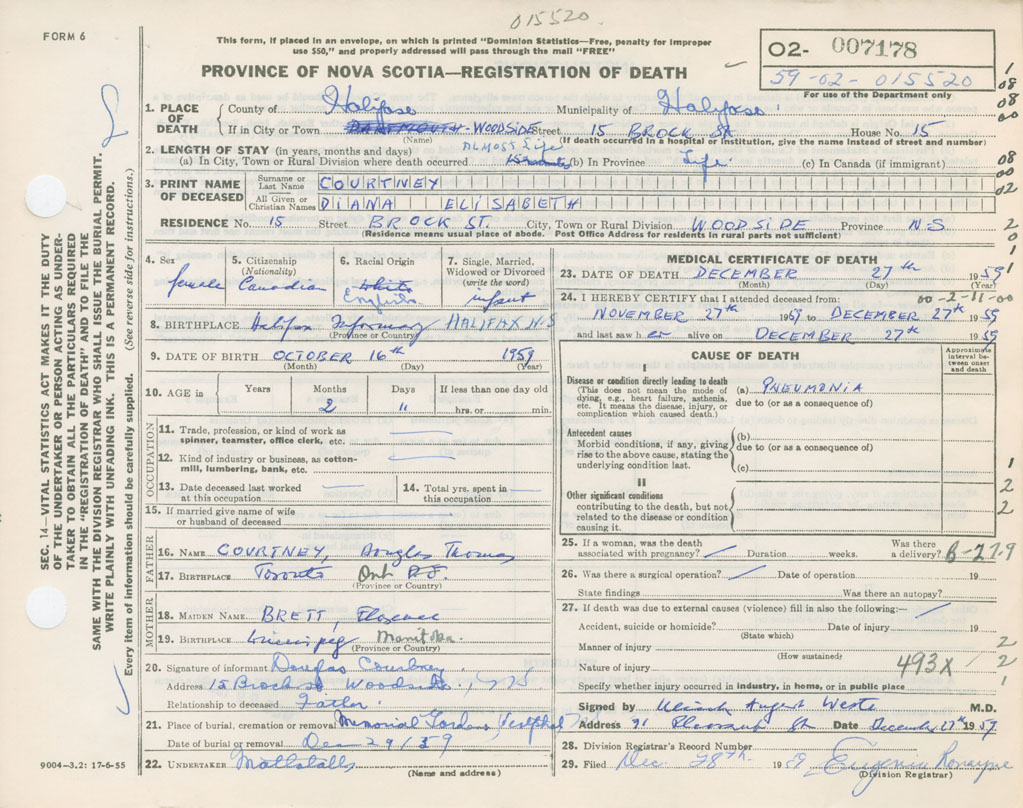 015520
FORM 6
This form, if placed in an envelope, on which is printed "Dominion Statistics—Free, penalty for improper
use $50," and properly addressed will pass through the mail "FREE"
PROVINCE OF NOVA SCOTIA—REGISTRATION OF DEATH
O2- 007178
59-02-015520
For use of the Department only
1. PLACE OF DEATH County of Halifax Municipality of Halifax
If in City or Town DARTMOUTH-WOODSIDE Street 15 BROCK St House No. 15
(Name) (If death occurred in a hospital or institution, give the name instead of street and number)
2. LENGTH OF STAY (in years, months and days) ALMOST Life
(a) In City, Town or Rural Division where death occurred (b) In Province Life (c) In Canada (if immigrant)
3. PRINT NAME OF DECEASED Surname or Last Name COURTNEY
All Given or Christian Names DIANA ELISABETH
RESIDENCE No. 15 Street BROCK ST. City, Town or Rural Division WOODSIDE Province N.S
(Residence means usual place of abode. Post Office Address for residents in rural parts not sufficient)
4. Sex female
5. Citizenship (Nationality) Canadian
6. Racial Origin White English
7. Single, Married, Widowed or Divorced (write the word) infant
8. BIRTHPLACE Halifax Infirmary HALIFAX N.S
(Province or Country)
9. DATE OF BIRTH OCTOBER 16th 1959
(Month) (Day) (Year)
10. AGE in Years Months 2 Days 11 If less than one day old hrs. or min.
OCCUPATION
11. Trade, profession, or kind of work as spinner, teamster, office clerk, etc.
12. Kind of industry or business, as cotton-mill, lumbering, bank, etc.
13. Date deceased last worked at this occupation
14. Total yrs. spent in this occupation
15. If married give name of wife or husband of deceased
FATHER
16. NAME COURTNEY, Douglas Thomas
17. BIRTHPLACE Toronto Ont
(Province or Country)
MOTHER
18. MAIDEN NAME BRETT, Florence
19. BIRTHPLACE Winnipeg Manitoba
(Province or Country)
20. Signature of informant Douglas Courtney
Address 15 Brock St Woodside, N.S.
Relationship to deceased Father
21. Place of burial, cremation or removal Memorial Gardens Westphal
Date of burial or removal Dec 29/59
22. UNDERTAKER Mattatalls
(Name and address)
9004—3.2: 17-6-55
MEDICAL CERTIFICATE OF DEATH
23. DATE OF DEATH DECEMBER 27th 1959
(Month) (Day) (Year)
24. I HEREBY CERTIFY that I attended deceased from: 00-2-11-00
NOVEMBER 27th 1959 to DECEMBER 27th 1959
and last saw her alive on DECEMBER 27th 1959
CAUSE OF DEATH
Approximate interval between onset and death
I
Disease or condition directly leading to death
(This does not mean the mode of dying, e.g., heart failure, asthenia, etc. It means the disease, injury, or complication which caused death.)
(a) PNEUMONIA
due to (or as a consequence of)
Antecedent causes
Morbid conditions, if any, giving rise to the above cause, stating the underlying condition last.
(b)
due to (or as a consequence of)
(c)
II
Other significant conditions
contributing to the death, but not related to the disease or condition causing it.
25. If a woman, was the death associated with pregnancy? Duration weeks. Was there a delivery? B-27.9
26. Was there a surgical operation? Date of operation 19
State findings Was there an autopsy?
27. If death was due to external causes (violence) fill in also the following:—
Accident, suicide or homicide? Date of injury 19
(State which)
Manner of injury
(How sustained)
Nature of injury 493X
Specify whether injury occurred in industry, in home, or in public place
Signed by August M.D.
Address 91 Pleasant St Date December 27th 1959
28. Division Registrar's Record Number
29. Filed Dec. 28th 1959 Eugenia Ronayne
(Division Registrar)
SEC. 14—VITAL STATISTICS ACT MAKES IT THE DUTY
OF THE UNDERTAKER OR PERSON ACTING AS UNDER-
TAKER TO OBTAIN ALL THE PARTICULARS REQUIRED
IN THE "REGISTRATION OF DEATH" AND TO FILE THE
SAME WITH THE DIVISION REGISTRAR WHO SHALL ISSUE THE BURIAL PERMIT.
WRITE PLAINLY WITH UNFADING INK. THIS IS A PERMANENT RECORD.
Every item of information should be carefully supplied. (See reverse side for instructions.)
1
08
08
00
08
00
02
2
0
1
1
1
2
2
2
2
1